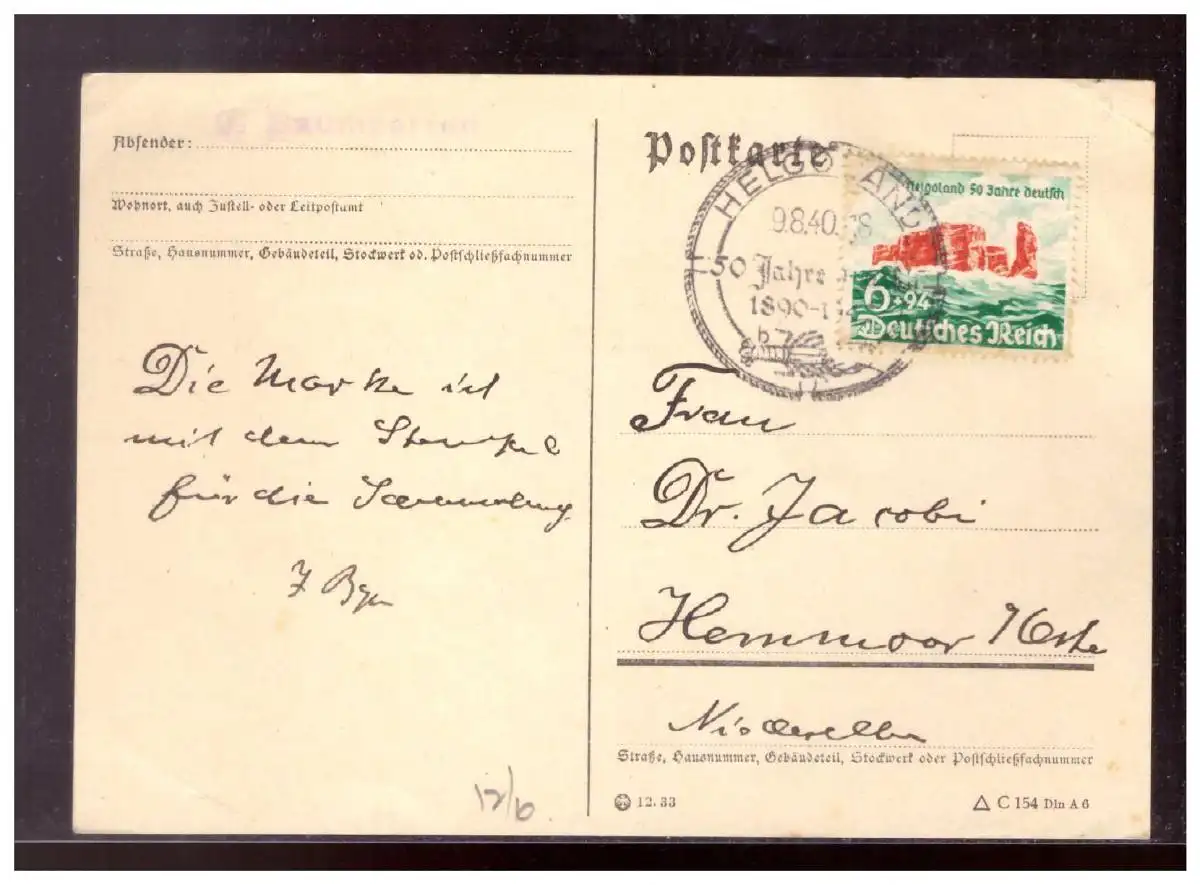 Absender:
Wohnort, auch Zustell- oder Leitpostamt
Straße, Hausnummer, Gebäudeteil, Stockwerk od. Postschließfachnummer
Die Marke ist
mit dem Stempel
für die Sammlung
12/6
Postkarte
HELGOLAND
9.8.40.
50 Jahre
1890-194
b
Helgoland 50 Jahre deutsch
6+94
Deutsches Reich
Frau
Dr. Jacobi
Hemmoor
Niederelbe
Straße, Hausnummer, Gebäudeteil, Stockwerk oder Postschließfachnummer
12.33
C 154 Din A 6